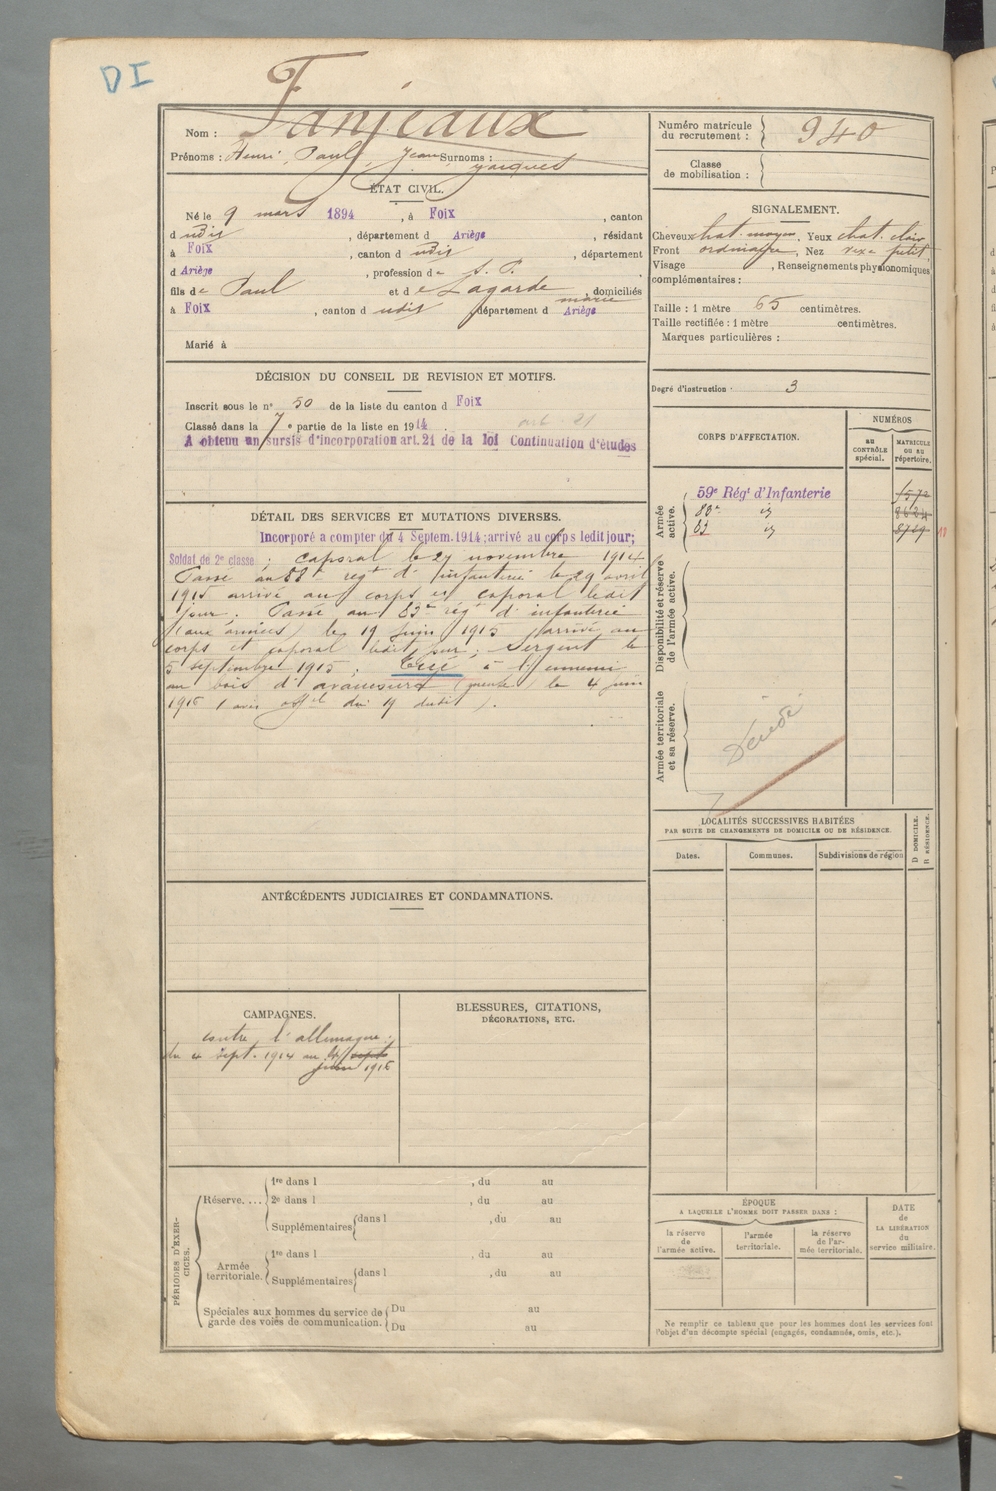 DI
Nom : Fanjeaux
Prénoms : Henri, Paul, Jean Surnoms :
Jacques
Numéro matricule du recrutement : 940
Classe de mobilisation :
ÉTAT CIVIL.
Né le 9 mars 1894, à Foix, canton
d udit, département d Ariège, résidant
à Foix, canton d udit, département
d Ariège, profession de S. P.
fils de Paul et de Lagarde marie, domiciliés
à Foix, canton d udit, département d Ariège
Marié à
SIGNALEMENT.
Cheveux chat. moyen, Yeux chat. clair
Front ordinaire, Nez petit.
Visage , Renseignements physionomiques
complémentaires :
Taille : 1 mètre 65 centimètres.
Taille rectifiée : 1 mètre centimètres.
Marques particulières :
Degré d'instruction : 3
DÉCISION DU CONSEIL DE REVISION ET MOTIFS.
Inscrit sous le n° 50 de la liste du canton d Foix
Classé dans la 7e partie de la liste en 1914. art. 21
A obtenu un sursis d'incorporation art. 21 de la loi Continuation d'études
DÉTAIL DES SERVICES ET MUTATIONS DIVERSES.
Incorporé a compter du 4 Septem. 1914; arrivé au corps ledit jour;
Soldat de 2e classe; caporal le 27 novembre 1914
Passé au 88e régt d'infanterie le 29 avril
1915 arrivé au corps et caporal ledit
jour. Passé au 83e régt d'infanterie
(aux armées) le 19 juin 1915 arrivé au
corps et caporal ledit jour. Sergent le
5 septembre 1915. Tué à l'ennemi
au bois d'avaucourt (meuse) le 4 juin
1916 (avis offel du 19 dudit).
CORPS D'AFFECTATION.
NUMÉROS
au CONTRÔLE spécial.
MATRICULE OU AU répertoire.
Armée active.
59e Régt d'Infanterie
88e id
83 id 8769
Disponibilité et réserve de l'armée active.
Armée territoriale et sa réserve.
Décédé
LOCALITÉS SUCCESSIVES HABITÉES
PAR SUITE DE CHANGEMENTS DE DOMICILE OU DE RÉSIDENCE.
Dates.
Communes.
Subdivisions de région
D DOMICILE.
R RÉSIDENCE.
ANTÉCÉDENTS JUDICIAIRES ET CONDAMNATIONS.
CAMPAGNES.
contre l'allemagne :
du 4 sept. 1914 au 4 sept
juin 1916
BLESSURES, CITATIONS,
DÉCORATIONS, ETC.
PÉRIODES D'EXERCICES.
Réserve....
1re dans l , du au
2e dans l , du au
Supplémentaires dans l , du au
Armée territoriale.
1re dans l , du au
Supplémentaires dans l , du au
Spéciales aux hommes du service de garde des voies de communication.
Du au
Du au
ÉPOQUE
A LAQUELLE L'HOMME DOIT PASSER DANS :
la réserve de l'armée active.
l'armée territoriale.
la réserve de l'armée territoriale.
DATE de LA LIBÉRATION du service militaire.
Ne remplir ce tableau que pour les hommes dont les services font
l'objet d'un décompte spécial (engagés, condamnés, omis, etc.).